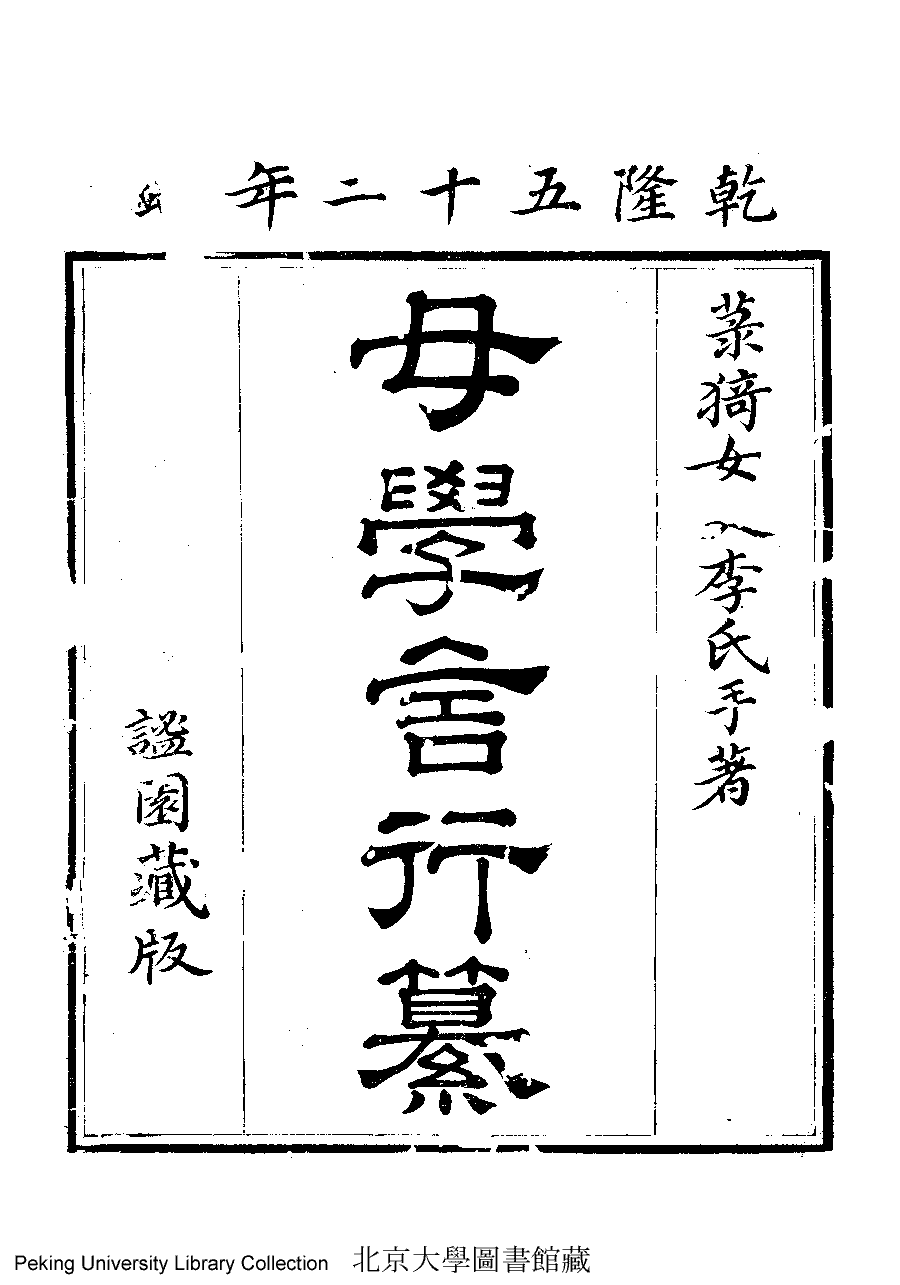 乾隆五十二年
菉猗女李氏手著
母學言行纂
謐園藏版
Peking University Library Collection 北京大學圖書館藏